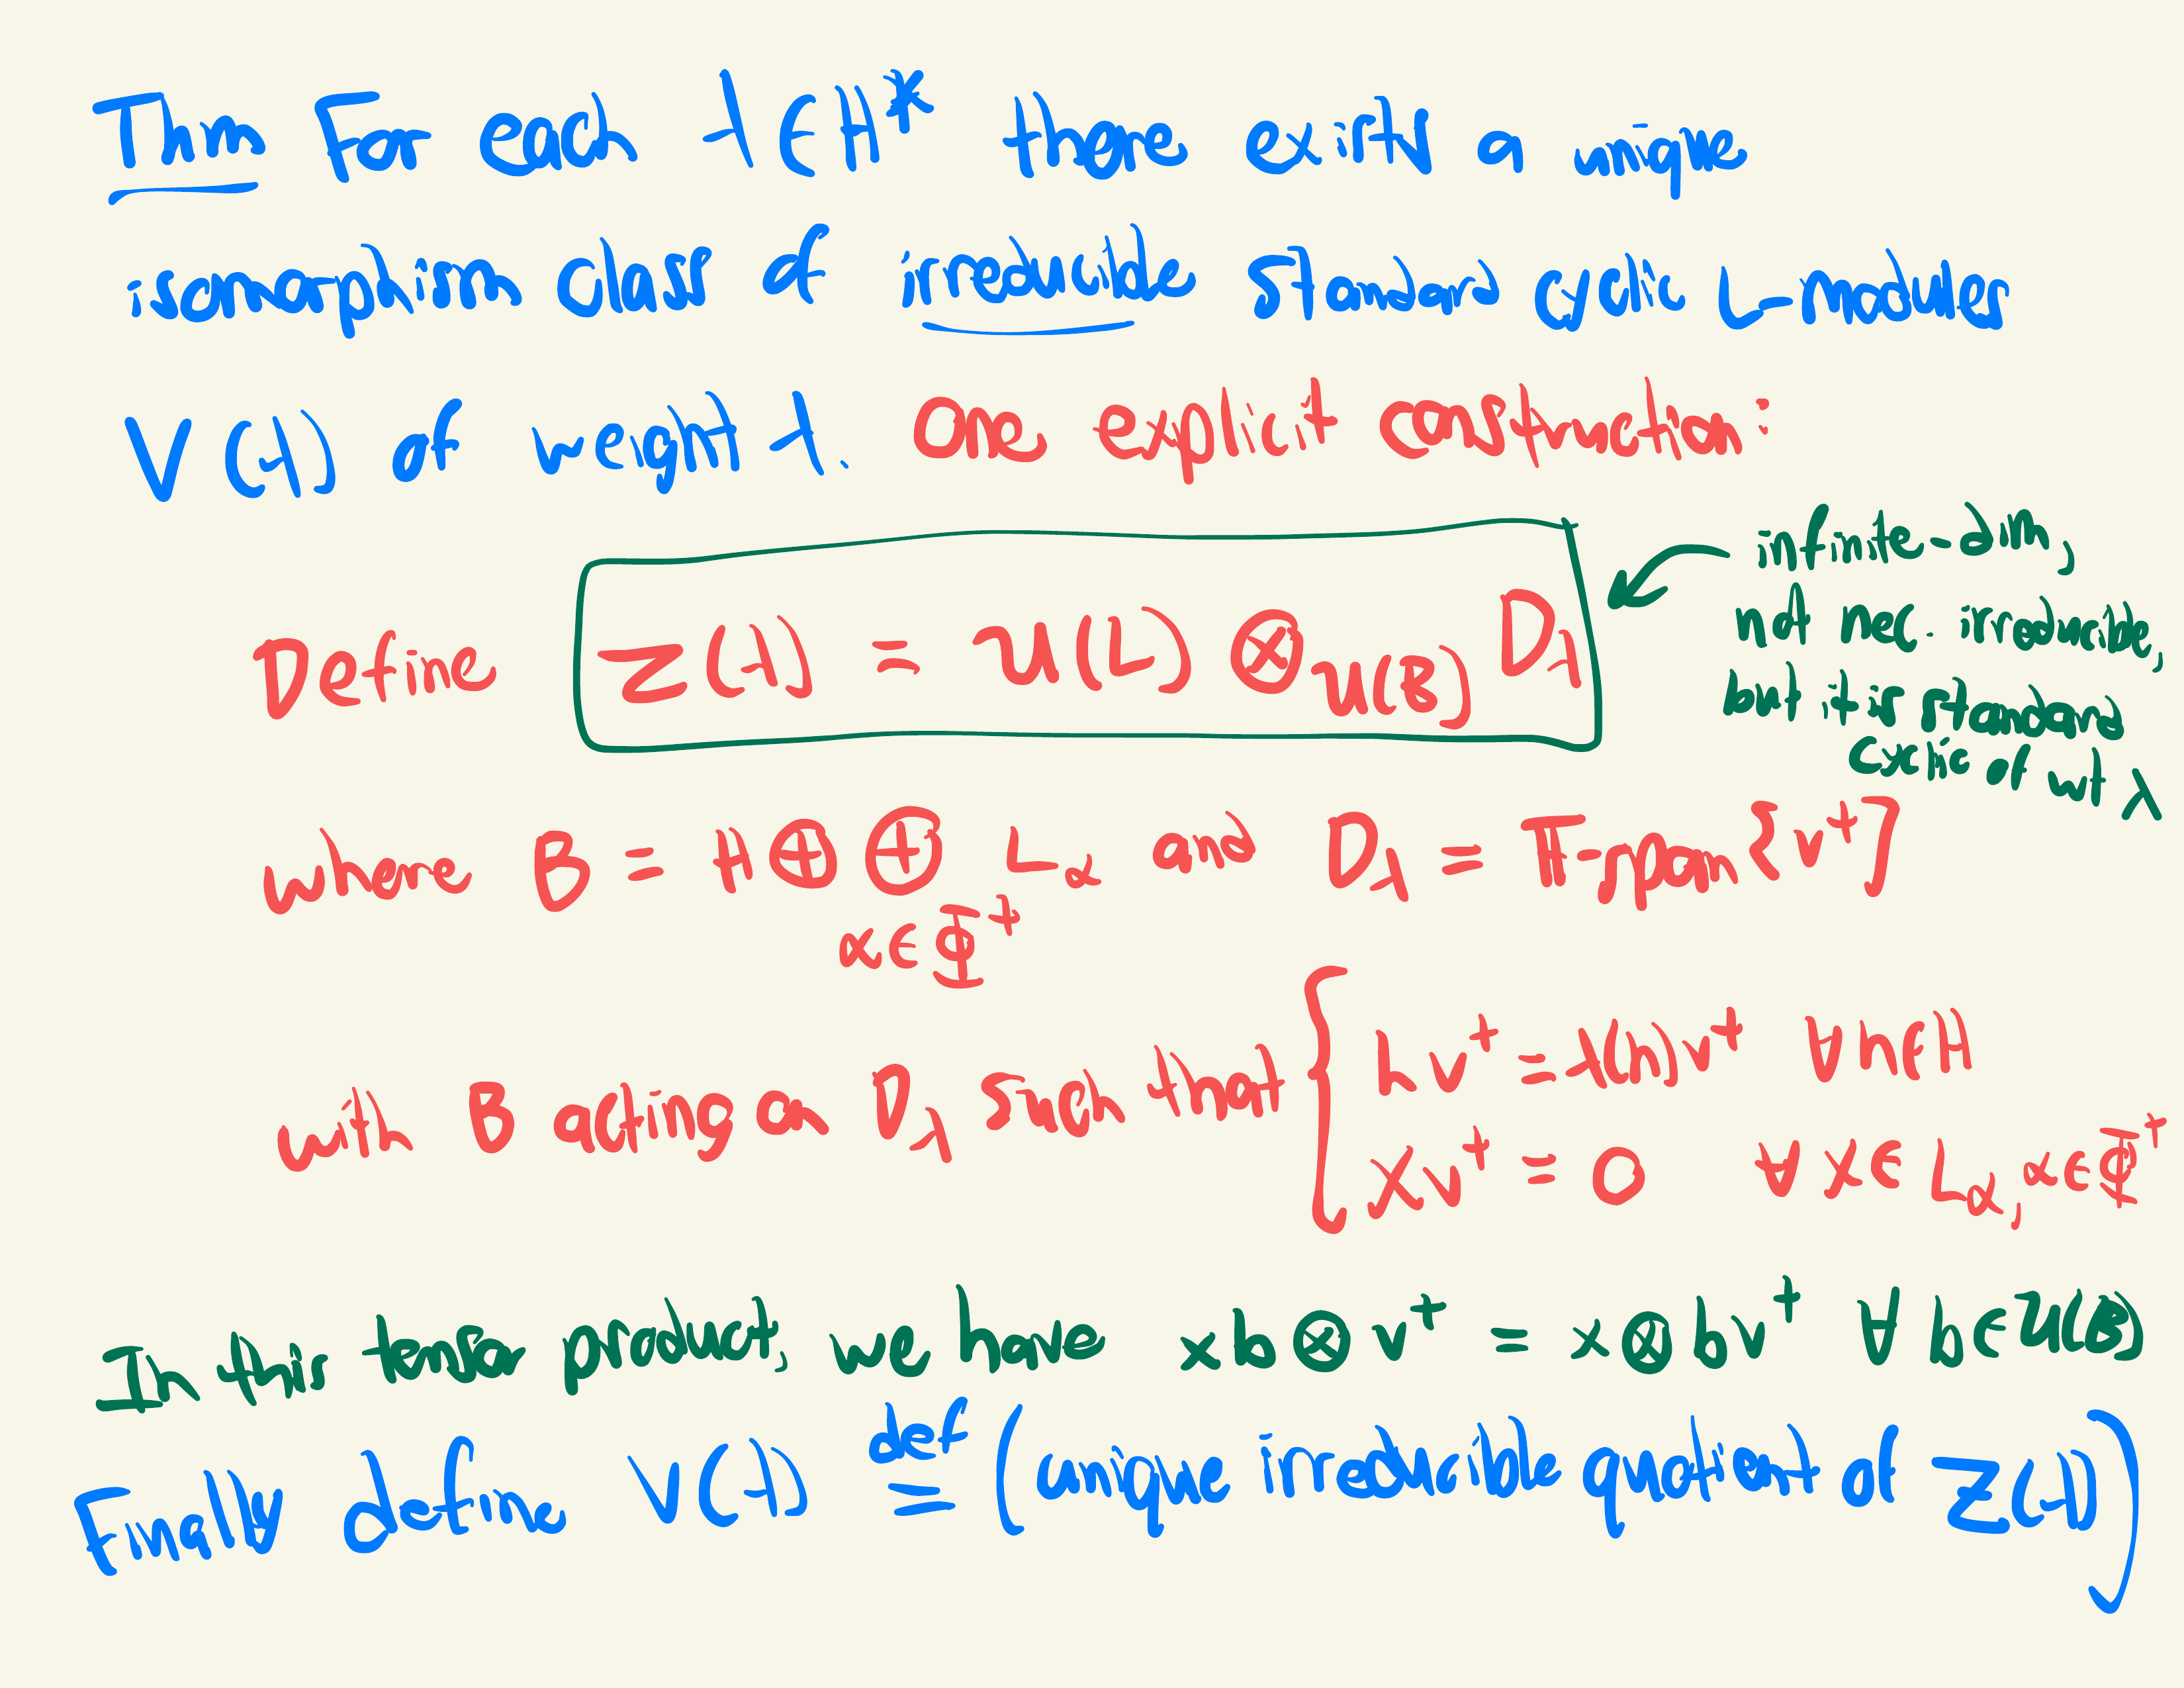 Thm For each λ ∈ H* there exists a unique
isomorphism class of irreducible standard cyclic L-modules
V(λ) of weight λ. One explicit construction:
infinite-dim,
not nec. irreducible,
but it is standard
cyclic of wt λ
Define Z(λ) = U(L) ⊗_{U(B)} D_λ
where B = H ⊕ ⊕_{α∈Φ⁺} L_α and D_λ = F-span{v⁺}
with B acting on D_λ such that { h v⁺ = λ(h)v⁺ ∀ h∈H
x v⁺ = 0 ∀ x ∈ L_α, α∈Φ⁺
In this tensor product, we have xb ⊗ v⁺ = x ⊗ bv⁺ ∀ b∈U(B)
Finally define V(λ) def= (unique irreducible quotient of Z(λ))